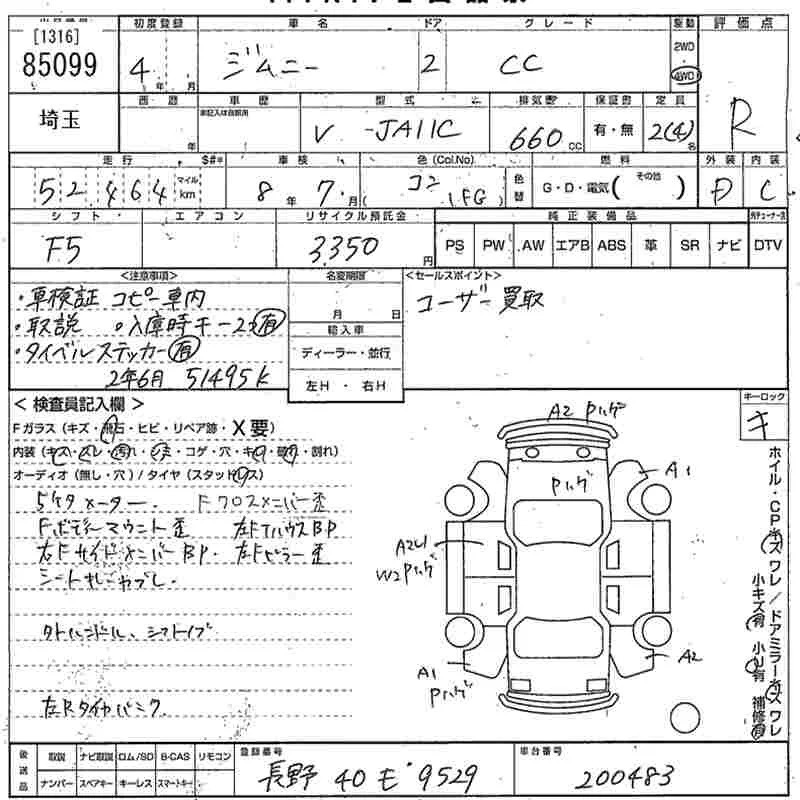 [1316]
85099
埼玉
初度登録 車名 ドア グレード 駆動 評価点
4年 月 ジムニー 2 CC 2WD 4WD R
西歴 車歴 型式 排気量 保証書 定員
年 V -JA11C 660cc 有・無 2(4)名
走行 $#* 車検 色(Col,No) 燃料 外装 内装
52464 マイル km 8年 7月 コン (FG) 色替 G・D・電気( その他 ) D C
シフト エアコン リサイクル預託金 純正装備品
F5 3350円 PS PW AW エアB ABS 革 SR ナビ DTV
<注意事項> 名変期限 <セールスポイント>
・車検証 コピー車内
・取説 ○入庫時キー2ヶ有
・タイベルステッカー有
2年6月 51495k
月 日
輸入車
ディーラー・並行
左H ・ 右H
ユーザー買取
< 検査員記入欄 >
Fガラス(キズ・飛石・ヒビ・リペア跡・X要)
オーディオ(無し・穴)/タイヤ(スタッドレス)
5ケタメーター. Fクロスメンバー歪
Fボディーマウント歪 左FTハウスBP
右FサイドメンバーBP. 左Fピラー歪
左Rタイヤパンク.
キーロック
キ
A2 Pハゲ
Pハゲ
A1
A2
A1
Pハゲ
W2Pハゲ
ホイル・CPキズ ワレ / ドアミラーキズ ワレ
小キズ有 小U有 補修有
後送品 取説 ナビ取説 ロム/SD B-CAS リモコン
ナンバー スペアキー キーレス スマートキー
登録番号
長野 40 モ 9529
車台番号
200483